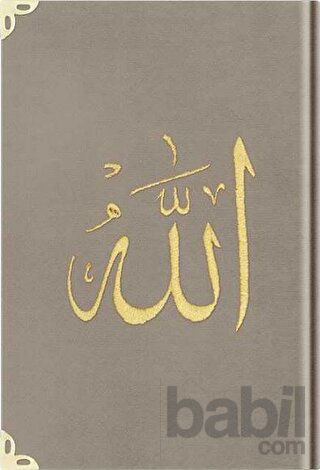 الله
babil
.com